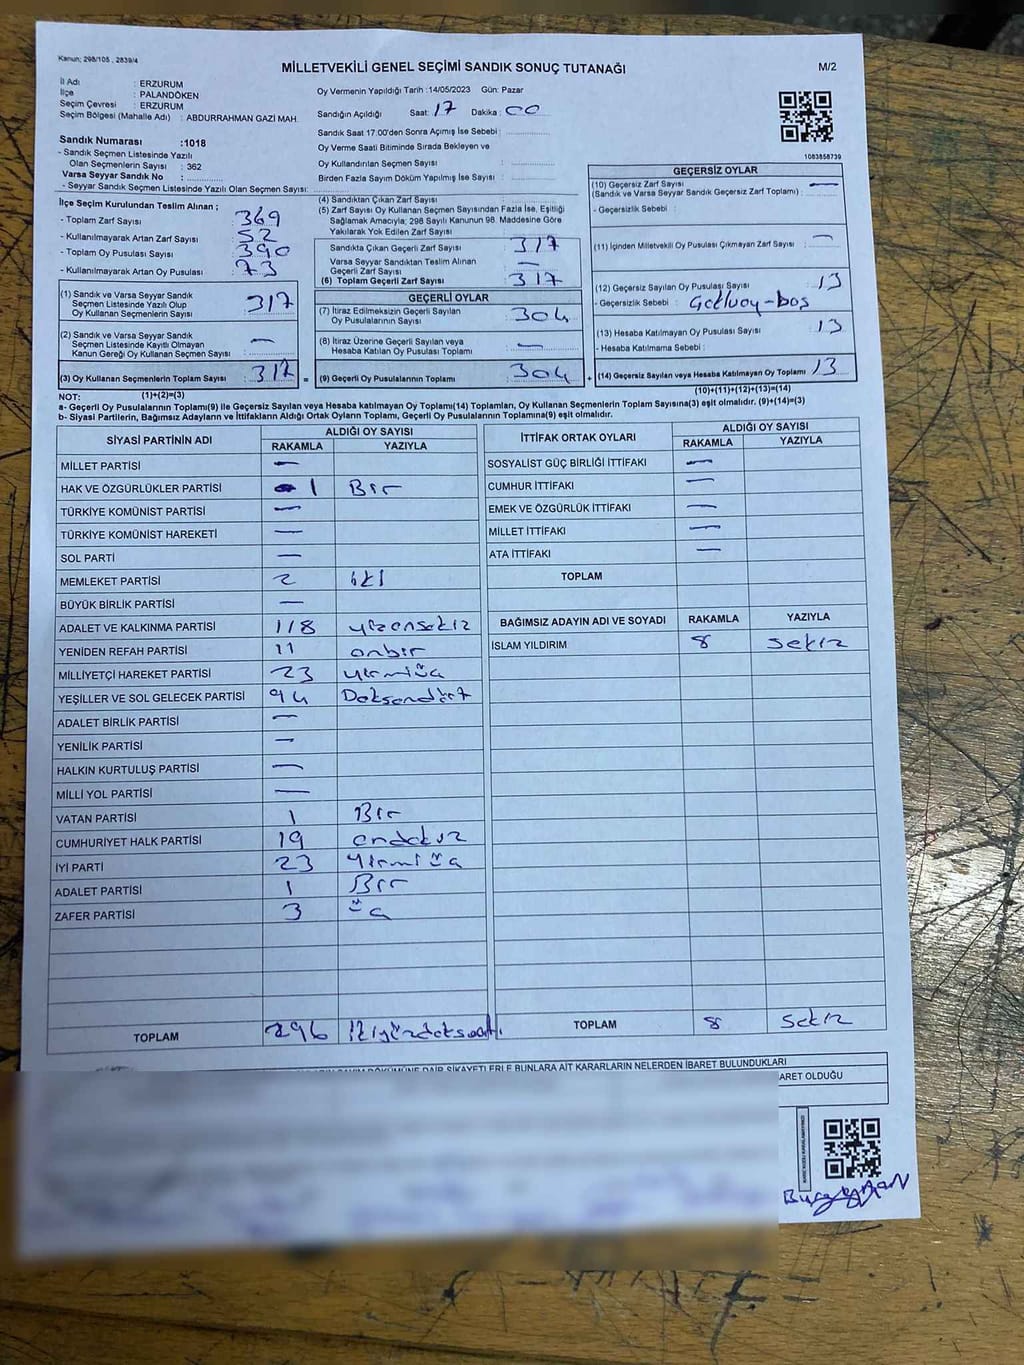 Kanun; 298/105 , 2839/4
MİLLETVEKİLİ GENEL SEÇİMİ SANDIK SONUÇ TUTANAĞI
M/2
İl Adı : ERZURUM
İlçe : PALANDÖKEN
Seçim Çevresi : ERZURUM
Seçim Bölgesi (Mahalle Adı) : ABDURRAHMAN GAZİ MAH.
Sandık Numarası :1018
- Sandık Seçmen Listesinde Yazılı
Olan Seçmenlerin Sayısı : 362
Varsa Seyyar Sandık No :
- Seyyar Sandık Seçmen Listesinde Yazılı Olan Seçmen Sayısı:
Oy Vermenin Yapıldığı Tarih :14/05/2023 Gün: Pazar
Sandığın Açıldığı Saat: 17 Dakika : 00
Sandık Saat 17:00'den Sonra Açılmış İse Sebebi :
Oy Verme Saati Bitiminde Sırada Bekleyen ve
Oy Kullandırılan Seçmen Sayısı :
Birden Fazla Sayım Döküm Yapılmış İse Sayısı :
1083858739
İlçe Seçim Kurulundan Teslim Alınan ;
- Toplam Zarf Sayısı : 369
- Kullanılmayarak Artan Zarf Sayısı : 52
- Toplam Oy Pusulası Sayısı : 390
- Kullanılmayarak Artan Oy Pusulası : 73
(1) Sandık ve Varsa Seyyar Sandık
Seçmen Listesinde Yazılı Olup
Oy Kullanan Seçmenlerin Sayısı : 317
(2) Sandık ve Varsa Seyyar Sandık
Seçmen Listesinde Kayıtlı Olmayan
Kanun Gereği Oy Kullanan Seçmen Sayısı : —
(3) Oy Kullanan Seçmenlerin Toplam Sayısı : 317 =
(4) Sandıktan Çıkan Zarf Sayısı :
(5) Zarf Sayısı Oy Kullanan Seçmen Sayısından Fazla İse, Eşitliği
Sağlamak Amacıyla; 298 Sayılı Kanunun 98. Maddesine Göre
Yakılarak Yok Edilen Zarf Sayısı :
Sandıkta Çıkan Geçerli Zarf Sayısı : 317
Varsa Seyyar Sandıktan Teslim Alınan
Geçerli Zarf Sayısı : —
(6) Toplam Geçerli Zarf Sayısı : 317
GEÇERLİ OYLAR
(7) İtiraz Edilmeksizin Geçerli Sayılan
Oy Pusulalarının Sayısı : 304
(8) İtiraz Üzerine Geçerli Sayılan veya
Hesaba Katılan Oy Pusulası Toplamı : —
(9) Geçerli Oy Pusulalarının Toplamı : 304 +
GEÇERSİZ OYLAR
(10) Geçersiz Zarf Sayısı : —
(Sandık ve Varsa Seyyar Sandık Geçersiz Zarf Toplamı)
- Geçersizlik Sebebi :
(11) İçinden Milletvekili Oy Pusulası Çıkmayan Zarf Sayısı : —
(12) Geçersiz Sayılan Oy Pusulası Sayısı : 13
- Geçersizlik Sebebi :
(13) Hesaba Katılmayan Oy Pusulası Sayısı : 13
- Hesaba Katılmama Sebebi :
(14) Geçersiz Sayılan veya Hesaba Katılmayan Oy Toplamı : 13
NOT: (1)+(2)=(3) (10)+(11)+(12)+(13)=(14)
a- Geçerli Oy Pusulalarının Toplamı(9) ile Geçersiz Sayılan veya Hesaba katılmayan Oy Toplamı(14) Toplamları, Oy Kullanan Seçmenlerin Toplam Sayısına(3) eşit olmalıdır. (9)+(14)=(3)
b- Siyasi Partilerin, Bağımsız Adayların ve İttifakların Aldığı Ortak Oyların Toplamı, Geçerli Oy Pusulalarının Toplamına(9) eşit olmalıdır.
SİYASİ PARTİNİN ADI ALDIĞI OY SAYISI
RAKAMLA YAZIYLA
MİLLET PARTİSİ —
HAK VE ÖZGÜRLÜKLER PARTİSİ 1 Bir
TÜRKİYE KOMÜNİST PARTİSİ —
TÜRKİYE KOMÜNİST HAREKETİ —
SOL PARTİ —
MEMLEKET PARTİSİ 2 iki
BÜYÜK BİRLİK PARTİSİ —
ADALET VE KALKINMA PARTİSİ 118 yüzonsekiz
YENİDEN REFAH PARTİSİ 11 onbir
MİLLİYETÇİ HAREKET PARTİSİ 23 yirmiüç
YEŞİLLER VE SOL GELECEK PARTİSİ 94 Doksandört
ADALET BİRLİK PARTİSİ —
YENİLİK PARTİSİ —
HALKIN KURTULUŞ PARTİSİ —
MİLLİ YOL PARTİSİ —
VATAN PARTİSİ 1 Bir
CUMHURİYET HALK PARTİSİ 19 ondokuz
İYİ PARTİ 23 Yirmiüç
ADALET PARTİSİ 1 Bir
ZAFER PARTİSİ 3 üç
TOPLAM 296 İkiyüzdoksanaltı
İTTİFAK ORTAK OYLARI ALDIĞI OY SAYISI
RAKAMLA YAZIYLA
SOSYALİST GÜÇ BİRLİĞİ İTTİFAKI —
CUMHUR İTTİFAKI —
EMEK VE ÖZGÜRLÜK İTTİFAKI —
MİLLET İTTİFAKI —
ATA İTTİFAKI —
TOPLAM
BAĞIMSIZ ADAYIN ADI VE SOYADI RAKAMLA YAZIYLA
İSLAM YILDIRIM 8 sekiz
TOPLAM 8 sekiz
DÖKÜMÜNE DAİR ŞİKAYETLERLE BUNLARA AİT KARARLARIN NELERDEN İBARET BULUNDUKLARI
ARET OLDUĞU